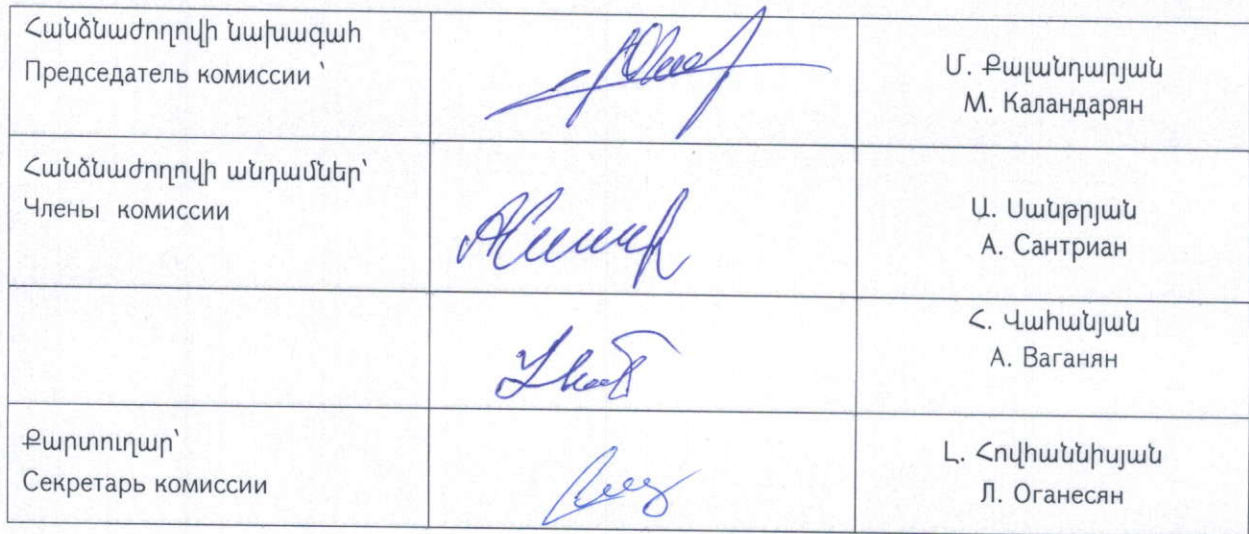 Հանձնաժողովի նախագահ
Председатель комиссии ՝
Մ. Քալանդարյան
М. Каландарян
Հանձնաժողովի անդամներ՝
Члены комиссии
Ա. Սանթրյան
А. Сантриан
Հ. Վահանյան
А. Ваганян
Քարտուղար՝
Секретарь комиссии
Լ. Հովհաննիսյան
Л. Оганесян